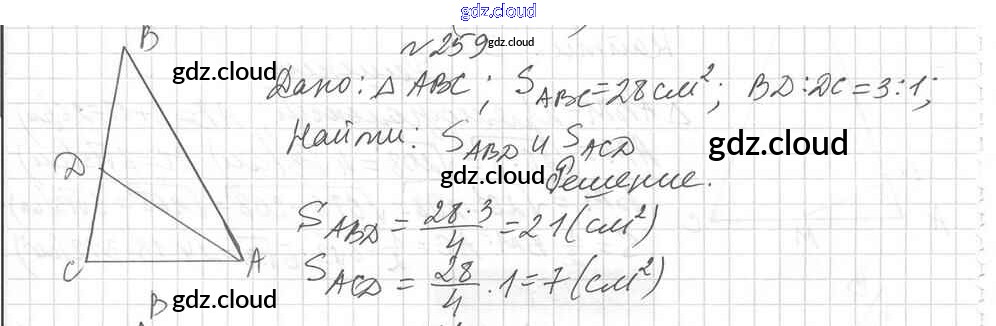 gdz.cloud
N259 gdz.cloud
B
gdz.cloud
Дано: △ ABC; S_ABC = 28 см²; BD:DC = 3:1;
Найти: S_ABD и S_ACD
gdz.cloud
D
gdz.cloud
Решение.
S_ABD = 28·3/4 = 21 (см²)
C
A
S_ACD = 28/4 · 1 = 7 (см²)
B
gdz.cloud
gdz.cloud